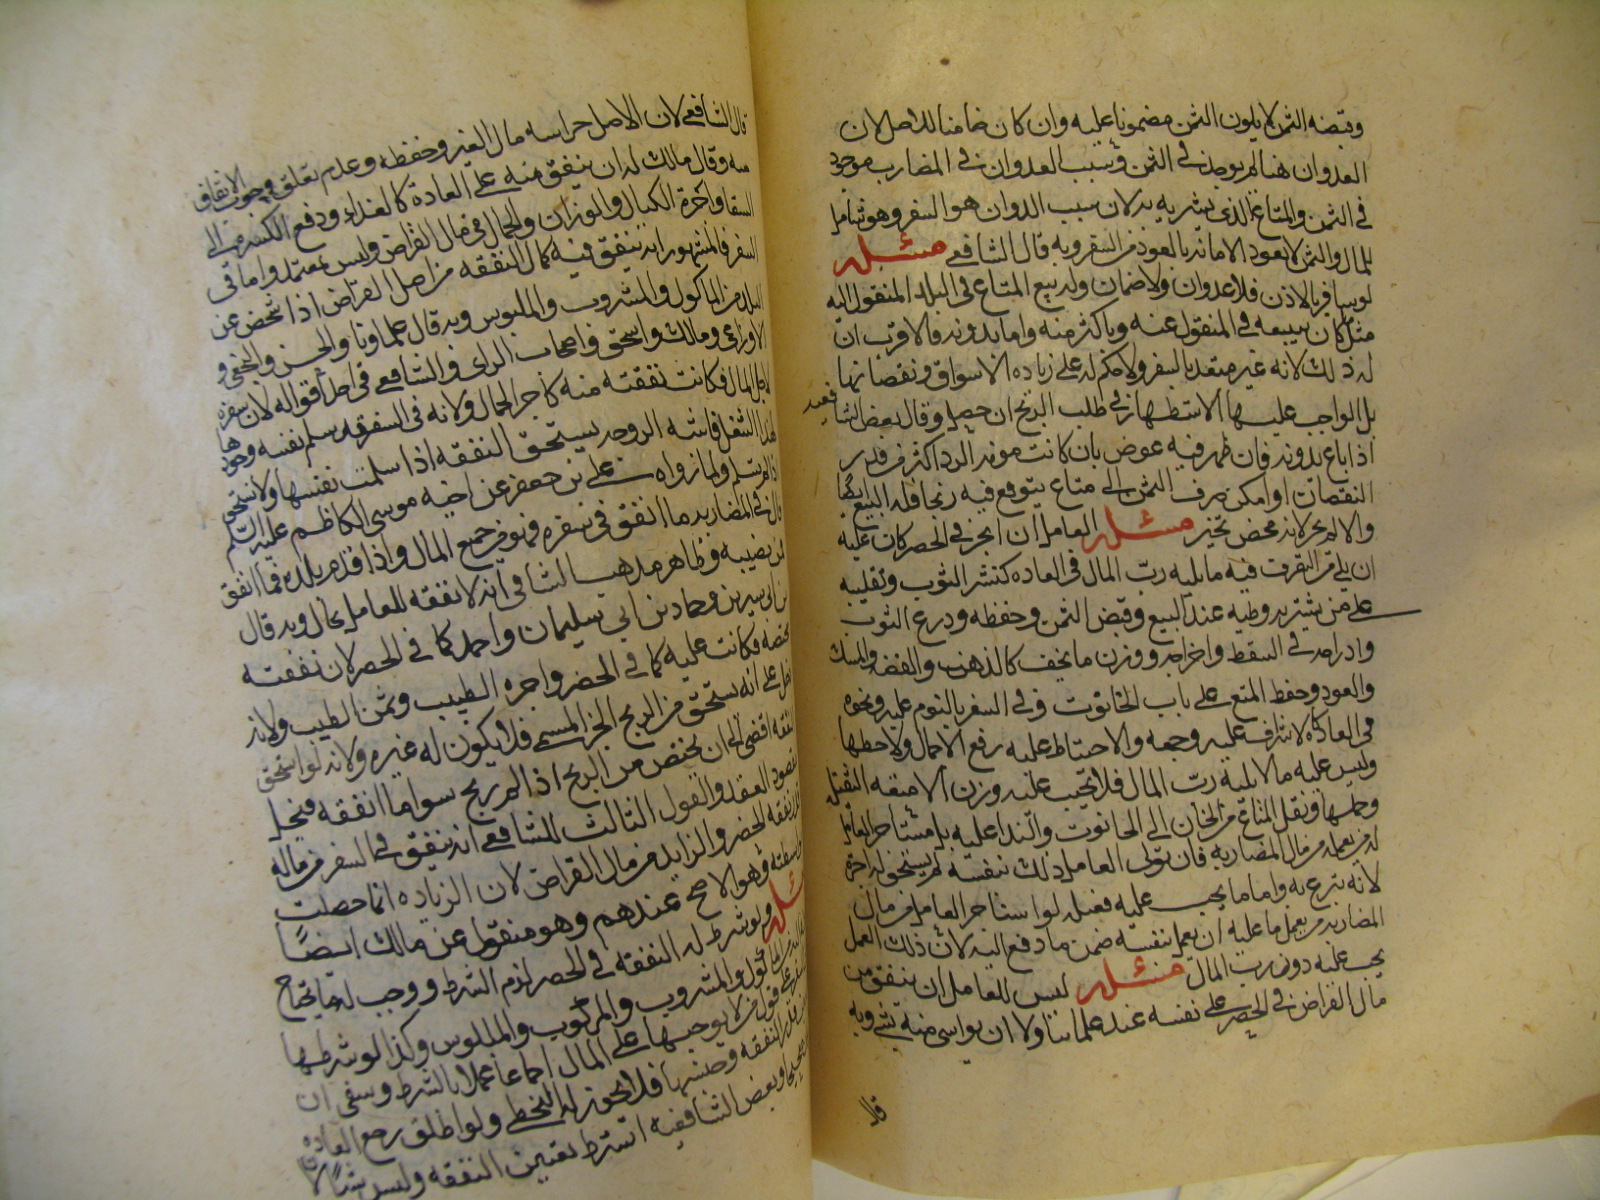 وقبضه الثمن لا يكون الثمن مضمونا عليه وان كان ضامنا للاصل لان
العدوان هنا لم يوجد في الثمن وسبب العدوان في المضارب موجود
في الثمن والمتاع الذي يشتريه به لان سبب العدوان هو السفر وهو شامل
للمال والثمن لا يعود الامانة بالعود من السفر وبه قال الشافعي مسئله
لو سافر بالاذن فلا عدوان ولا ضمان وله بيع المتاع في البلد المنقول اليه
مثل كان يبيعه في المنقول عنه وباكثر منه واما بدونه فالاقرب ان
له ذلك لانه غير متعد بالسفر ولا حكم له على زياده الاسواق ونقصانها
بل الواجب عليه الاستظهار في طلب الربح ان حصل وقال بعض الشافعيه
اذا باع بدونه فان ظهر فيه عوض بان كانت مونه الرد اكثر من قدر
النقصان او امكن صرف الثمن الى متاع يتوقع فيه ربحا فله البيع ايضا
والا لم يجز لانه محض تخسير مسئله العامل ان اتجر في الحضر كان عليه
ان يلي من التصرف فيه ما يليه رب المال في العاده كنشر الثوب وتقليبه
على من يشتريه وطيه عند البيع وقبض الثمن وحفظه وذرع الثوب
وادراجه في السفط واخراجه ووزن ما يخف كالذهب والفضه والمسك
والعود وحفظ المتاع على باب الحانوت وفي السفر بالنوم عليه ونحوه
في العاده والاشراف عليه وجمعه والاحتياط عليه برفع الاحمال ولا حطها
وليس عليه ما لا يليه رب المال فلا يجب عليه وزن الامتعه الثقيله
وحملها ونقل المتاع من الخان الى الحانوت والندا عليه بل يستاجر العامل
له من يعمله من مال المضاربه فان تولى العامل ذلك بنفسه لم يستحق له اجره
لانه تبرع به واما ما يجب عليه فعله لو استاجر العامل من مال
المضاربه من يعمل ما عليه ان يعمل بنفسه ضمن ما دفع اليه لان ذلك العمل
يجب عليه دون رب المال مسئله ليس للعامل ان ينفق من
مال القراض في الحضر على نفسه عند علمائنا ولا ان يواسي منه بشي وبه
قال
قال الشافعي لان الاصل حراسه مال الغير وحفظه وعدم تعلق وجوب الانفاق
منه وقال مالك له ان ينفق منه على العادة كالغداء ودفع الكسره الى
السقا واجرة الكيال والوزان والحمال في مال القراض وليس بمعتمد واما في
السفر فالمشهور انه ينفق فيه كمال النفقه من اصل القراض اذا شخص عن
البلد من الماكول والمشروب والملبوس وبه قال علماونا والحسن والنخعي و
الاوزاعي ومالك واسحق واصحاب الراى والشافعي في احد اقواله لان سفره
لاجل المال فكانت نفقته منه كاجر الحمال ولانه في السفر قد سلم نفسه وجردها
لهذا الشغل فاشبه الزوجه تستحق النفقه اذا سلمت نفسها ولا تستحق
اذا لم تسلم ولما رواه على بن جعفر عن اخيه موسى الكاظم عليه السلم
قال في المضاربه ما انفق في سفره فهو من جميع المال واذا قدم بلده فما انفق
فمن نصيبه وظاهر مذهب الشافعي انه لا نفقه للعامل بحال وبه قال
ابن سيرين وحماد بن ابي سليمان واحمد كما في الحضر لان نفقته
تخصه فكانت عليه كما في الحضر واجره الطبيب وثمن الطيب ولانه
دخل على انه يستحق من الربح الجزء المسمى فلا يكون له غيره ولانه لو استحق
النفقه افضى الى ان يختص من الربح اذا لم يربح سوا ما انفقه فيخل
بمقصود العقد والقول الثالث للشافعي انه ينفق في السفر من ماله
قدر نفقه الحضر والزايد من مال القراض لان الزياده انما حصلت
بواسطته وهو الاصح عندهم وهو منقول عن مالك ايضا
مسئله ولو شرط له النفقه في الحضر لزم الشرط ووجب له ما يحتاج
اليه من الماكول والمشروب والمركوب والملبوس وكذا لو شرطها
في السفر على قول من لا يوجبها على المال اجماعا عملا بالشرط وينبغي ان
يعين قدر النفقه وجنسها فلا يجوز له التخطي ولو اطلق رجع الى العاده
وبعض الشافعيه اشترط تعيين النفقه وليس شيئا لان